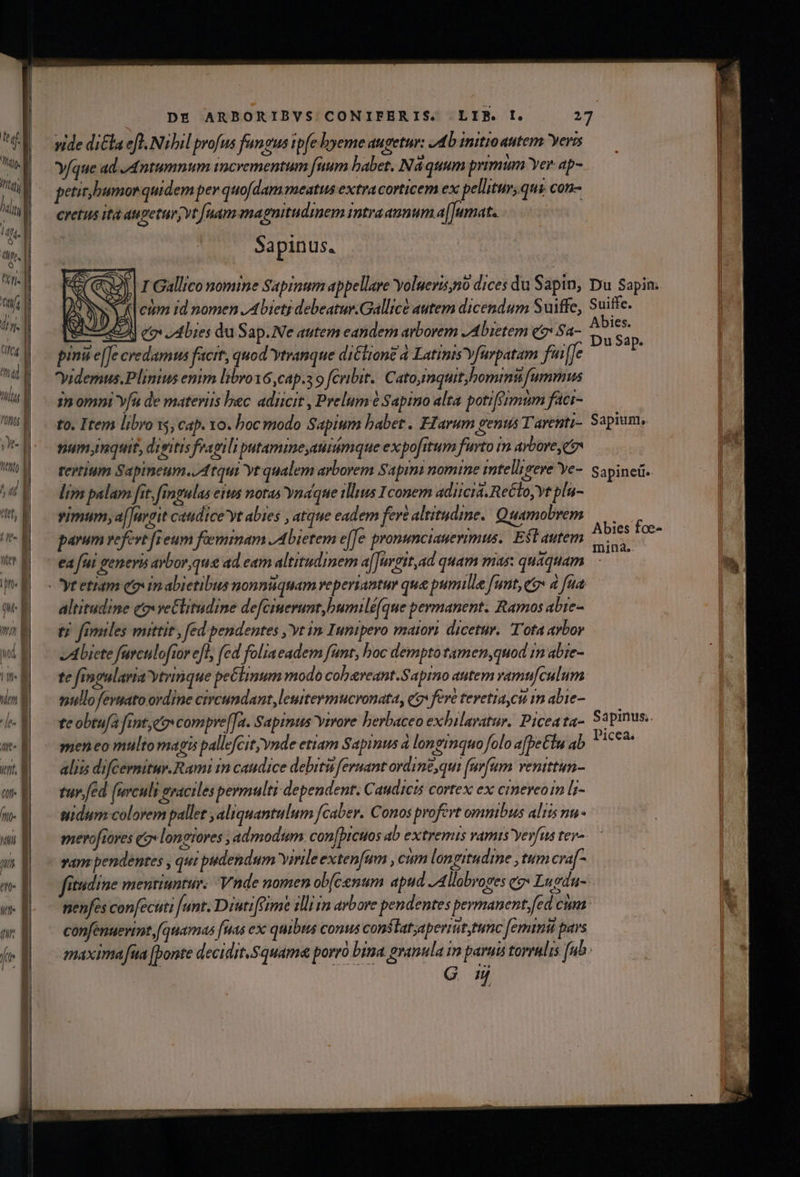 DE ARBORIBVS CONIFERIS. LIB. I. 27
vide dicta est. Nihil profus fungus ipse hyeme augetur: Ab initio autem Veris
vsque ad Autumnum incrementum suum habet. Nā quum primùm Ver ap-
petit, humor quidem per quosdam meatus extra corticem ex pellitur, qui con-
cretus ita augetur, vt suam magnitudinem intra annum assumat.
Sapinus.
SI Gallico nomine Sapinum appellare volueris, nō dices du Sapin,
cùm id nomen Abieti debeatur. Gallicè autem dicendum Suiffe,
& Abies du Sap. Ne autem eandem arborem Abietem & Sa-
pinū esse credamus facit, quod vtranque dictionē à Latinis vsurpatam fuisse
videmus. Plinius enim libro 16, cap. 39 scribit. Cato, inquit, hominū summus
in omni vsu de materiis hæc adiicit, Prelum è Sapino alta potissimùm faci-
to. Item libro 15, cap. 10. hoc modo Sapium habet. Harum genus Tarenti-
num, inquit, digitis fragili putamine, auiúmque expositum furto in arbore, &
tertium Sapineum. Atqui vt qualem arborem Sapini nomine intelligere ve-
lim palam fit, singulas eius notas vnáque illius Iconem adiiciā. Recto, vt plu-
rimum, assurgit caudice vt abies, atque eadem ferè altitudine. Quamobrem
parum refert si eum fœminam Abietem esse pronunciauerimus. Est autem
ea sui generis arbor, quæ ad eam altitudinem assurgit, ad quam mas: quāquam
vt etiam & in abietibus nonnūquam reperiantur quæ pumilæ sunt, & à sua
altitudine & rectitudine desciuerunt, humiléque permanent. Ramos abie-
ti similes mittit, sed pendentes, vt in Iunipero maiori dicetur. Tota arbor
Abiete surculosior est, sed folia eadem sunt, hoc dempto tamen, quod in abie-
te singularia vtrinque pectinum modo cohæreant. Sapino autem ramusculum
nullo seruato ordine circundant, leuiter mucronata, & ferè teretia, cū in abie-
te obtusa sint, & compressa. Sapinus virore herbaceo exhilaratur. Picea ta-
men eo multo magis pallescit, vnde etiam Sapinus à longinquo solo aspectu ab
aliis discernitur. Rami in caudice debitū seruant ordinē, qui sursum renittun-
tur, sed surculi graciles permulti dependent. Caudicis cortex ex cinereo in li-
uidum colorem pallet, aliquantulum scaber. Conos profert omnibus aliis nu-
merosiores & longiores, admodum conspicuos ab extremis ramis versus ter-
ram pendentes, qui pudendum virile extensum, cum longitudine, tum cras-
situdine mentiuntur. Vnde nomen obscœnum apud Allobroges & Lugdu-
nenses consecuti sunt. Diutissimè illi in arbore pendentes permanent, sed cùm
consenuerint, squamas suas ex quibus conus constat, aperiūt, tunc seminū pars
maxima sua sponte decidit. Squamæ porrò bina granula in paruis torrulis sub
G iij
Du Sapin.
Suiffe.
Abies.
Du Sap.
Sapium.
Sapineū.
Abies fœ-
mina.
Sapinus.
Picea.